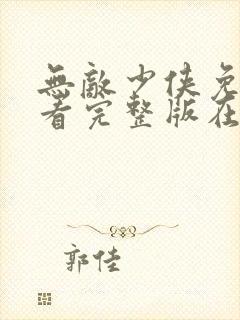 無敵少俠免
看完整版在
郭佳